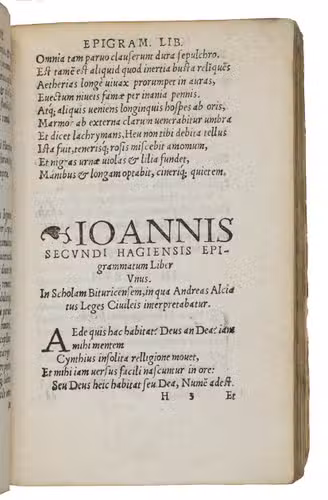 EPIGRAM. LIB.
Omnia tam paruo clauserunt dura sepulchro.
Est tamē est aliquid quod inertia busta reliquēs
Aetherias longè viuax prorumpet in auras,
Euectum niueis famæ per inania pennis.
Atq; aliquis veniens longinquis hospes ab oris,
Marmor ab externa clarum venerabitur vmbra
Et dicet lachrymans, Heu non tibi debita tellus
Ista fuit, teneriſq; rosis miscebit amomum,
Et nigras vrnæ violas & lilia fundet,
Manibus & longam optabit, cineriq; quietem.
IOANNIS
SECVNDI HAGIENSIS EPI-
grammatum Liber
Vnus.
In Scholam Bituricensem, in qua Andreas Alcia
tus Leges Ciuileis interpretabatur.
AEde quis hac habitat? Deus an Dea? iam
mihi mentem
Cynthius insolita relligione mouet,
Et mihi iam versus facili nascuntur in ore:
Seu Deus heic habitat seu Dea, Numē adest.
H 3 Et